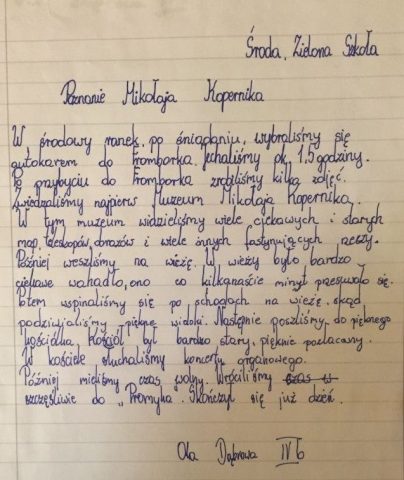 Środa, Zielona Szkoła
Poznanie Mikołaja Kopernika
W środowy ranek, po śniadaniu, wybraliśmy się
autokarem do Fromborka. Jechaliśmy ok. 1,5 godziny.
Po przybyciu do Fromborka zrobiliśmy kilka zdjęć.
Zwiedzaliśmy najpierw Muzeum Mikołaja Kopernika.
W tym muzeum widzieliśmy wiele ciekawych i starych
map, teleskopów, obrazów i wiele innych fascynujących rzeczy.
Później weszliśmy na wieżę. W wieży było bardzo
ciekawe wahadło, ono co kilkanaście minut przesuwało się.
Potem wspinaliśmy się po schodach na wieżę, skąd
podziwialiśmy piękne widoki. Następnie poszliśmy do pięknego
kościółka. Kościół był bardzo stary, pięknie pozłacany.
W kościele słuchaliśmy koncertu organowego.
Później mieliśmy czas wolny. Wróciliśmy czas w
szczęśliwie do „Promyka. Skończył się już dzień.
Ola Dąbrowa IV b